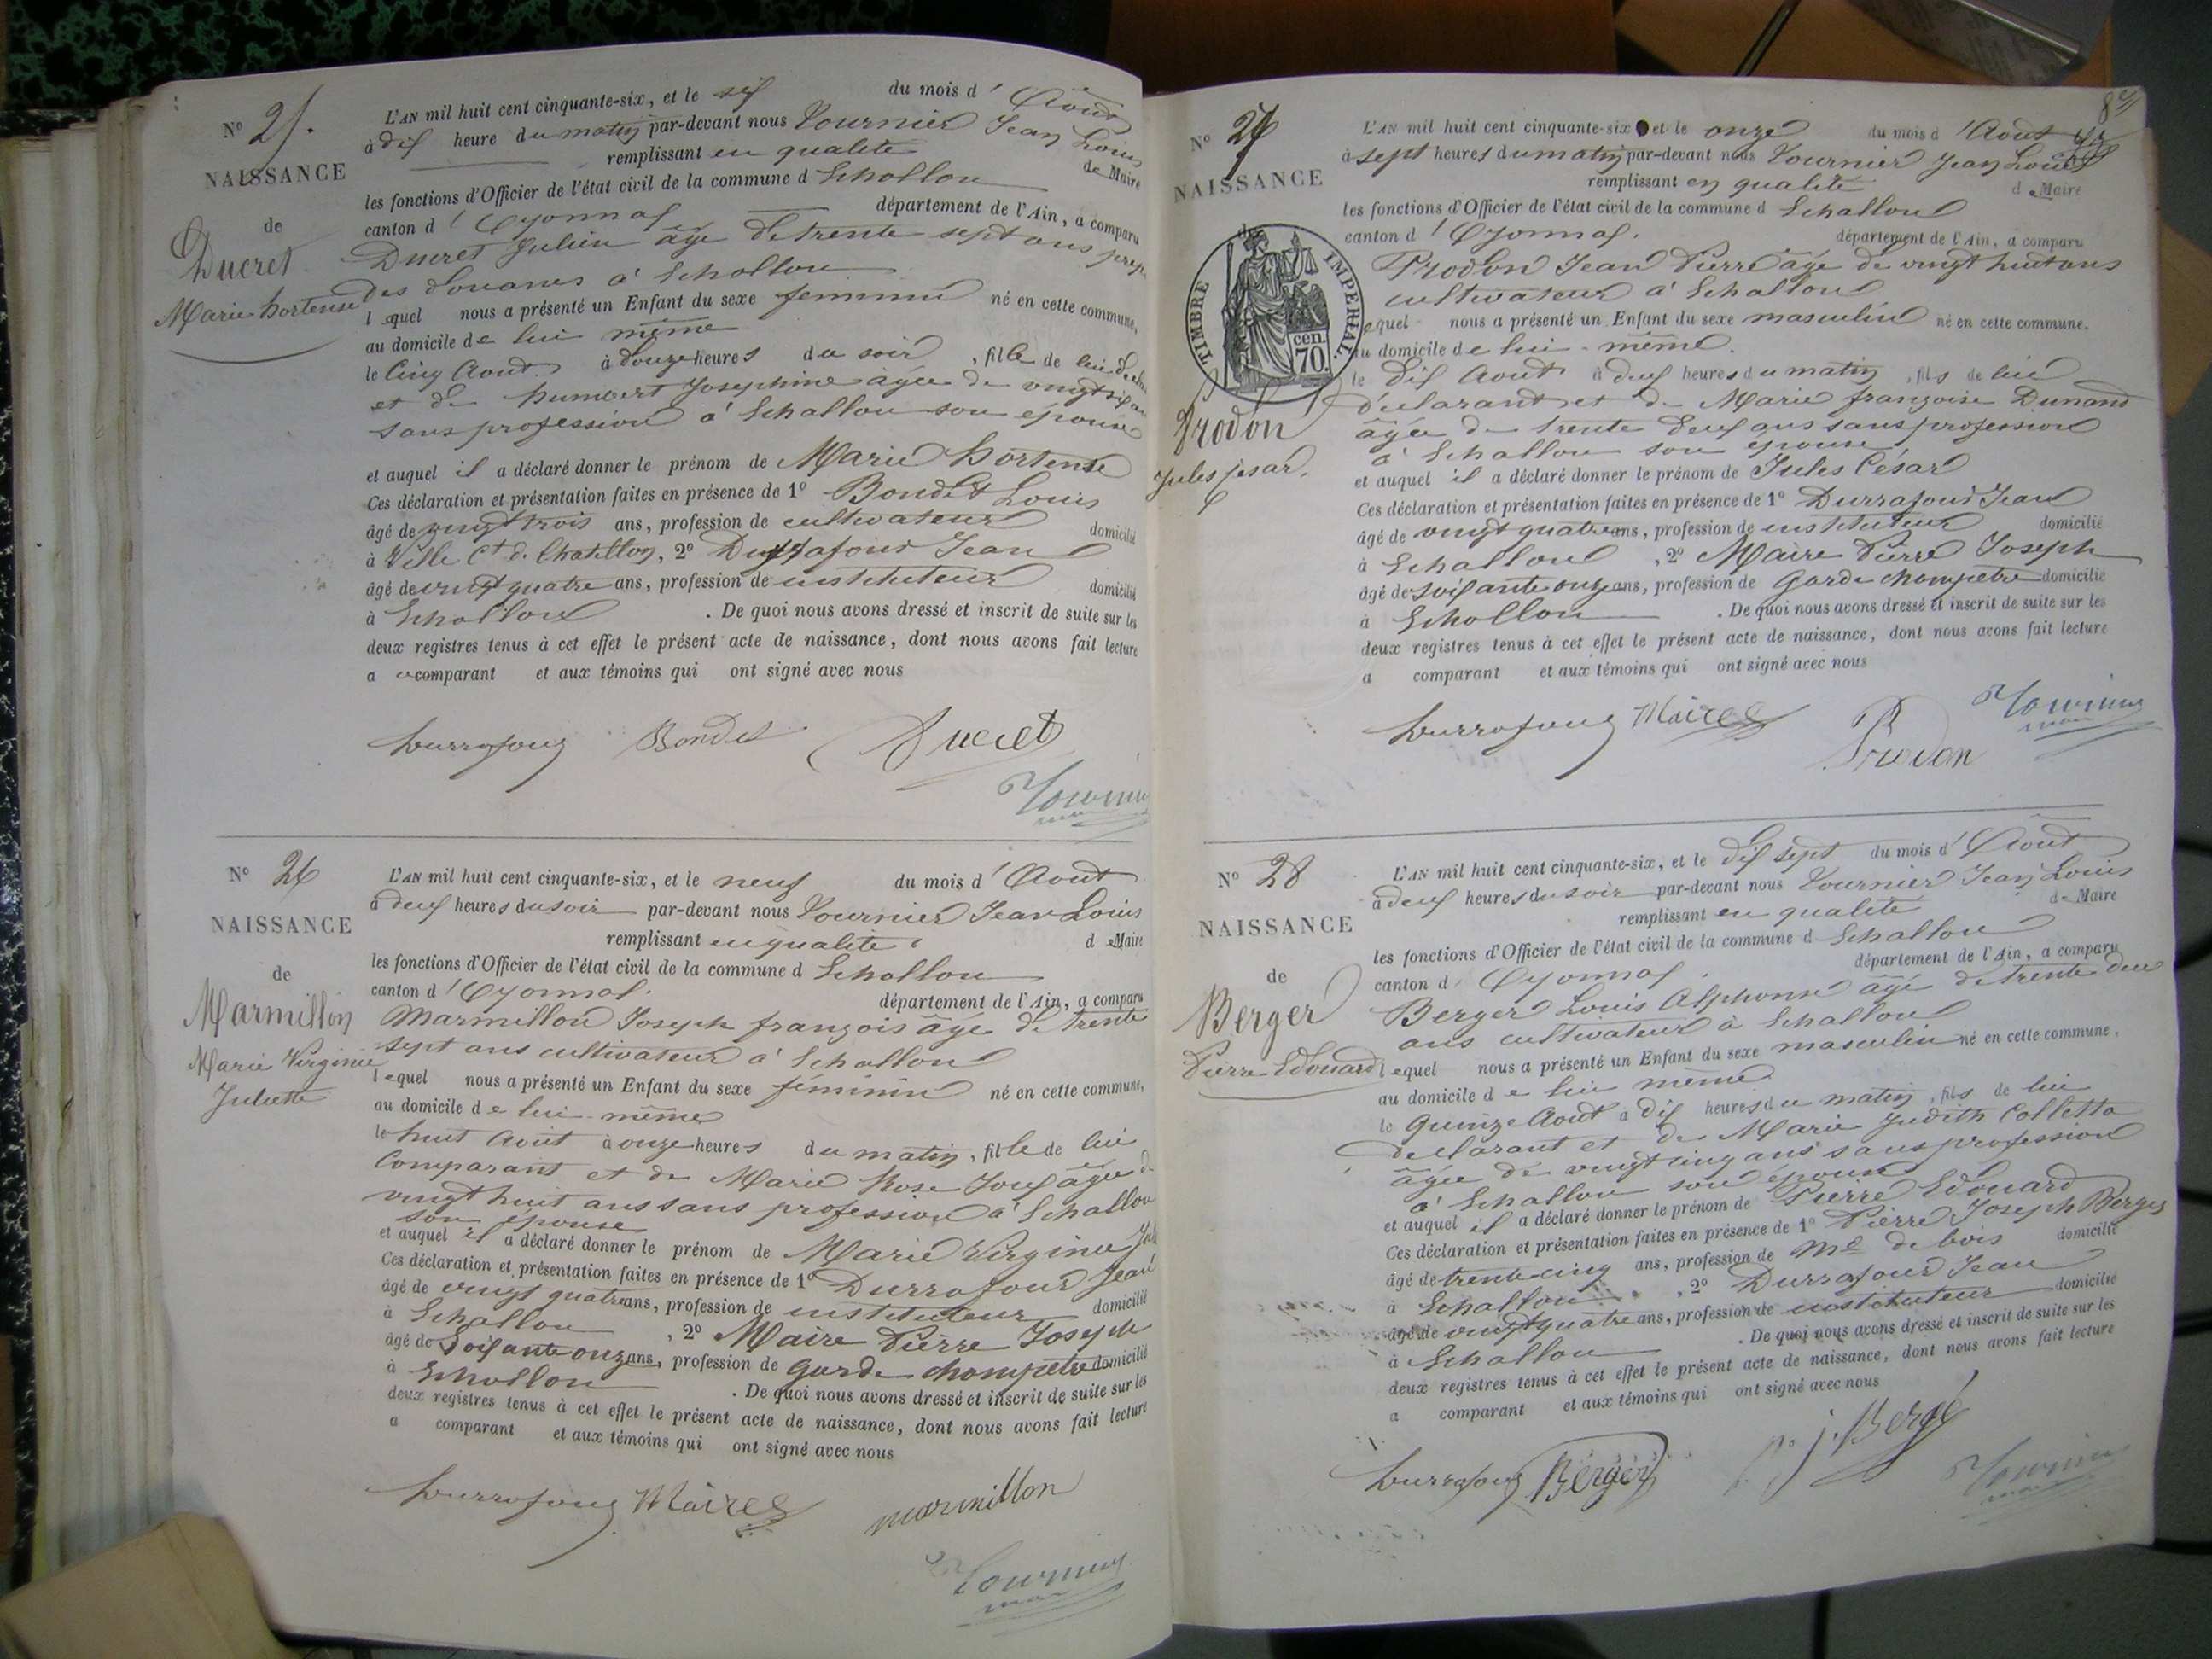 N° 25.
NAISSANCE
de
Ducret
Marie hortense
L'AN mil huit cent cinquante-six, et le six du mois d' Août
à dix heure du matin par-devant nous Tournier Jean Louis
remplissant en qualité de Maire
les fonctions d'Officier de l'état civil de la commune d Echallon
canton d' Oyonnax département de l'Ain, a comparu
Ducret Julien âgé de trente sept ans prep.
des douanes à Echallon
lequel nous a présenté un Enfant du sexe feminin né en cette commune,
au domicile de lui même
le Cinq Aout à douze heures du soir, fille de lui
et de humbert Josephine âgée de vingt six
sans profession à Echallon son épouse
et auquel il a déclaré donner le prénom de Marie hortense
Ces déclaration et présentation faites en présence de 1° Bondet Louis
âgé de vingt trois ans, profession de cultivateur domicilié
à Ville Ct d. Chatillon, 2° Durrafour Jean
âgé de vingt quatre ans, profession de instituteur domicilié
à Echallon . De quoi nous avons dressé et inscrit de suite sur les
deux registres tenus à cet effet le présent acte de naissance, dont nous avons fait lecture
a u comparant et aux témoins qui ont signé avec nous
Durrafour Bondet Ducret
Tournier
maire
N° 26
NAISSANCE
de
Marmillon
Marie Virginie
Juliette
L'AN mil huit cent cinquante-six, et le neuf du mois d' Aout
à deux heures du soir par-devant nous Tournier Jean Louis
remplissant en qualité de Maire
les fonctions d'Officier de l'état civil de la commune d Echallon
canton d' Oyonnax. département de l'Ain, a comparu
Marmillon Joseph françois âgé de trente
sept ans cultivateur à Echallon
lequel nous a présenté un Enfant du sexe féminin né en cette commune,
au domicile de lui-même
le huit Août à onze heures du matin, fille de lui
Comparant et de Marie Rose Joux âgée de
vingt huit ans sans profession à Echallon
son épouse
et auquel il a déclaré donner le prénom de Marie Virginie
Ces déclaration et présentation faites en présence de 1° Durrafour Jean
âgé de vingt quatre ans, profession de instituteur domicilié
à Echallon, 2° Maire Pierre Joseph
âgé de Soixante onze ans, profession de garde champetre domicilié
à Echallon . De quoi nous avons dressé et inscrit de suite sur les
deux registres tenus à cet effet le présent acte de naissance, dont nous avons fait lecture
a comparant et aux témoins qui ont signé avec nous
Durrafour Maire marmillon
Tournier
maire
N° 27
NAISSANCE
TIMBRE IMPERIAL.
70 cen.
Prodon
Jules Cesar.
L'AN mil huit cent cinquante-six et le onze du mois d' Aout
à sept heures du matin par-devant nous Tournier Jean Louis
remplissant en qualité de Maire
les fonctions d'Officier de l'état civil de la commune d Echallon
canton d' Oyonnax. département de l'Ain, a comparu
Prodon Jean Pierre âgé de vingt huit ans
cultivateur à Echallon
lequel nous a présenté un Enfant du sexe masculin né en cette commune.
au domicile de lui-même.
le dix Aout à deux heures du matin, fils de lui
déclarant et de Marie françoise Dunand
âgée de trente deux ans sans profession
à Echallon son épouse
et auquel il a déclaré donner le prénom de Jules César
Ces déclaration et présentation faites en présence de 1° Durrafour Jean
âgé de vingt quatre ans, profession de instituteur domicilié
à Echallon, 2° Maire Pierre Joseph
âgé de soixante onze ans, profession de garde champetre domicilié
à Echallon . De quoi nous avons dressé et inscrit de suite sur les
deux registres tenus à cet effet le présent acte de naissance, dont nous avons fait lecture
a comparant et aux témoins qui ont signé avec nous
Durrafour Maire Prodon Tournier
maire
N° 28
NAISSANCE
de
Berger
Pierre Edouard
L'AN mil huit cent cinquante-six, et le dix sept du mois d' Août
à deux heures du soir par-devant nous Tournier Jean Louis
remplissant en qualité de Maire
les fonctions d'Officier de l'état civil de la commune d Echallon
canton d' Oyonnax. département de l'Ain, a comparu
Berger Louis Alphonse âgé de trente deux
ans cultivateur à Echallon
lequel nous a présenté un Enfant du sexe masculin né en cette commune,
au domicile de lui même
le quinze Aout à dix heures du matin, fils de lui
declarant et de Marie Judith Colletta
âgée de vingt cinq ans sans profession
à Echallon son épouse
et auquel il a déclaré donner le prénom de Pierre Edouard
Ces déclaration et présentation faites en présence de 1° Pierre Joseph Berger
âgé de trente cinq ans, profession de Md de bois domicilié
à Echallon, 2° Durrafour Jean
âgé de vingt quatre ans, profession de instituteur domicilié
à Echallon . De quoi nous avons dressé et inscrit de suite sur les
deux registres tenus à cet effet le présent acte de naissance, dont nous avons fait lecture
a comparant et aux témoins qui ont signé avec nous
Durrafour Berger P. j. Bergé
Tournier
maire